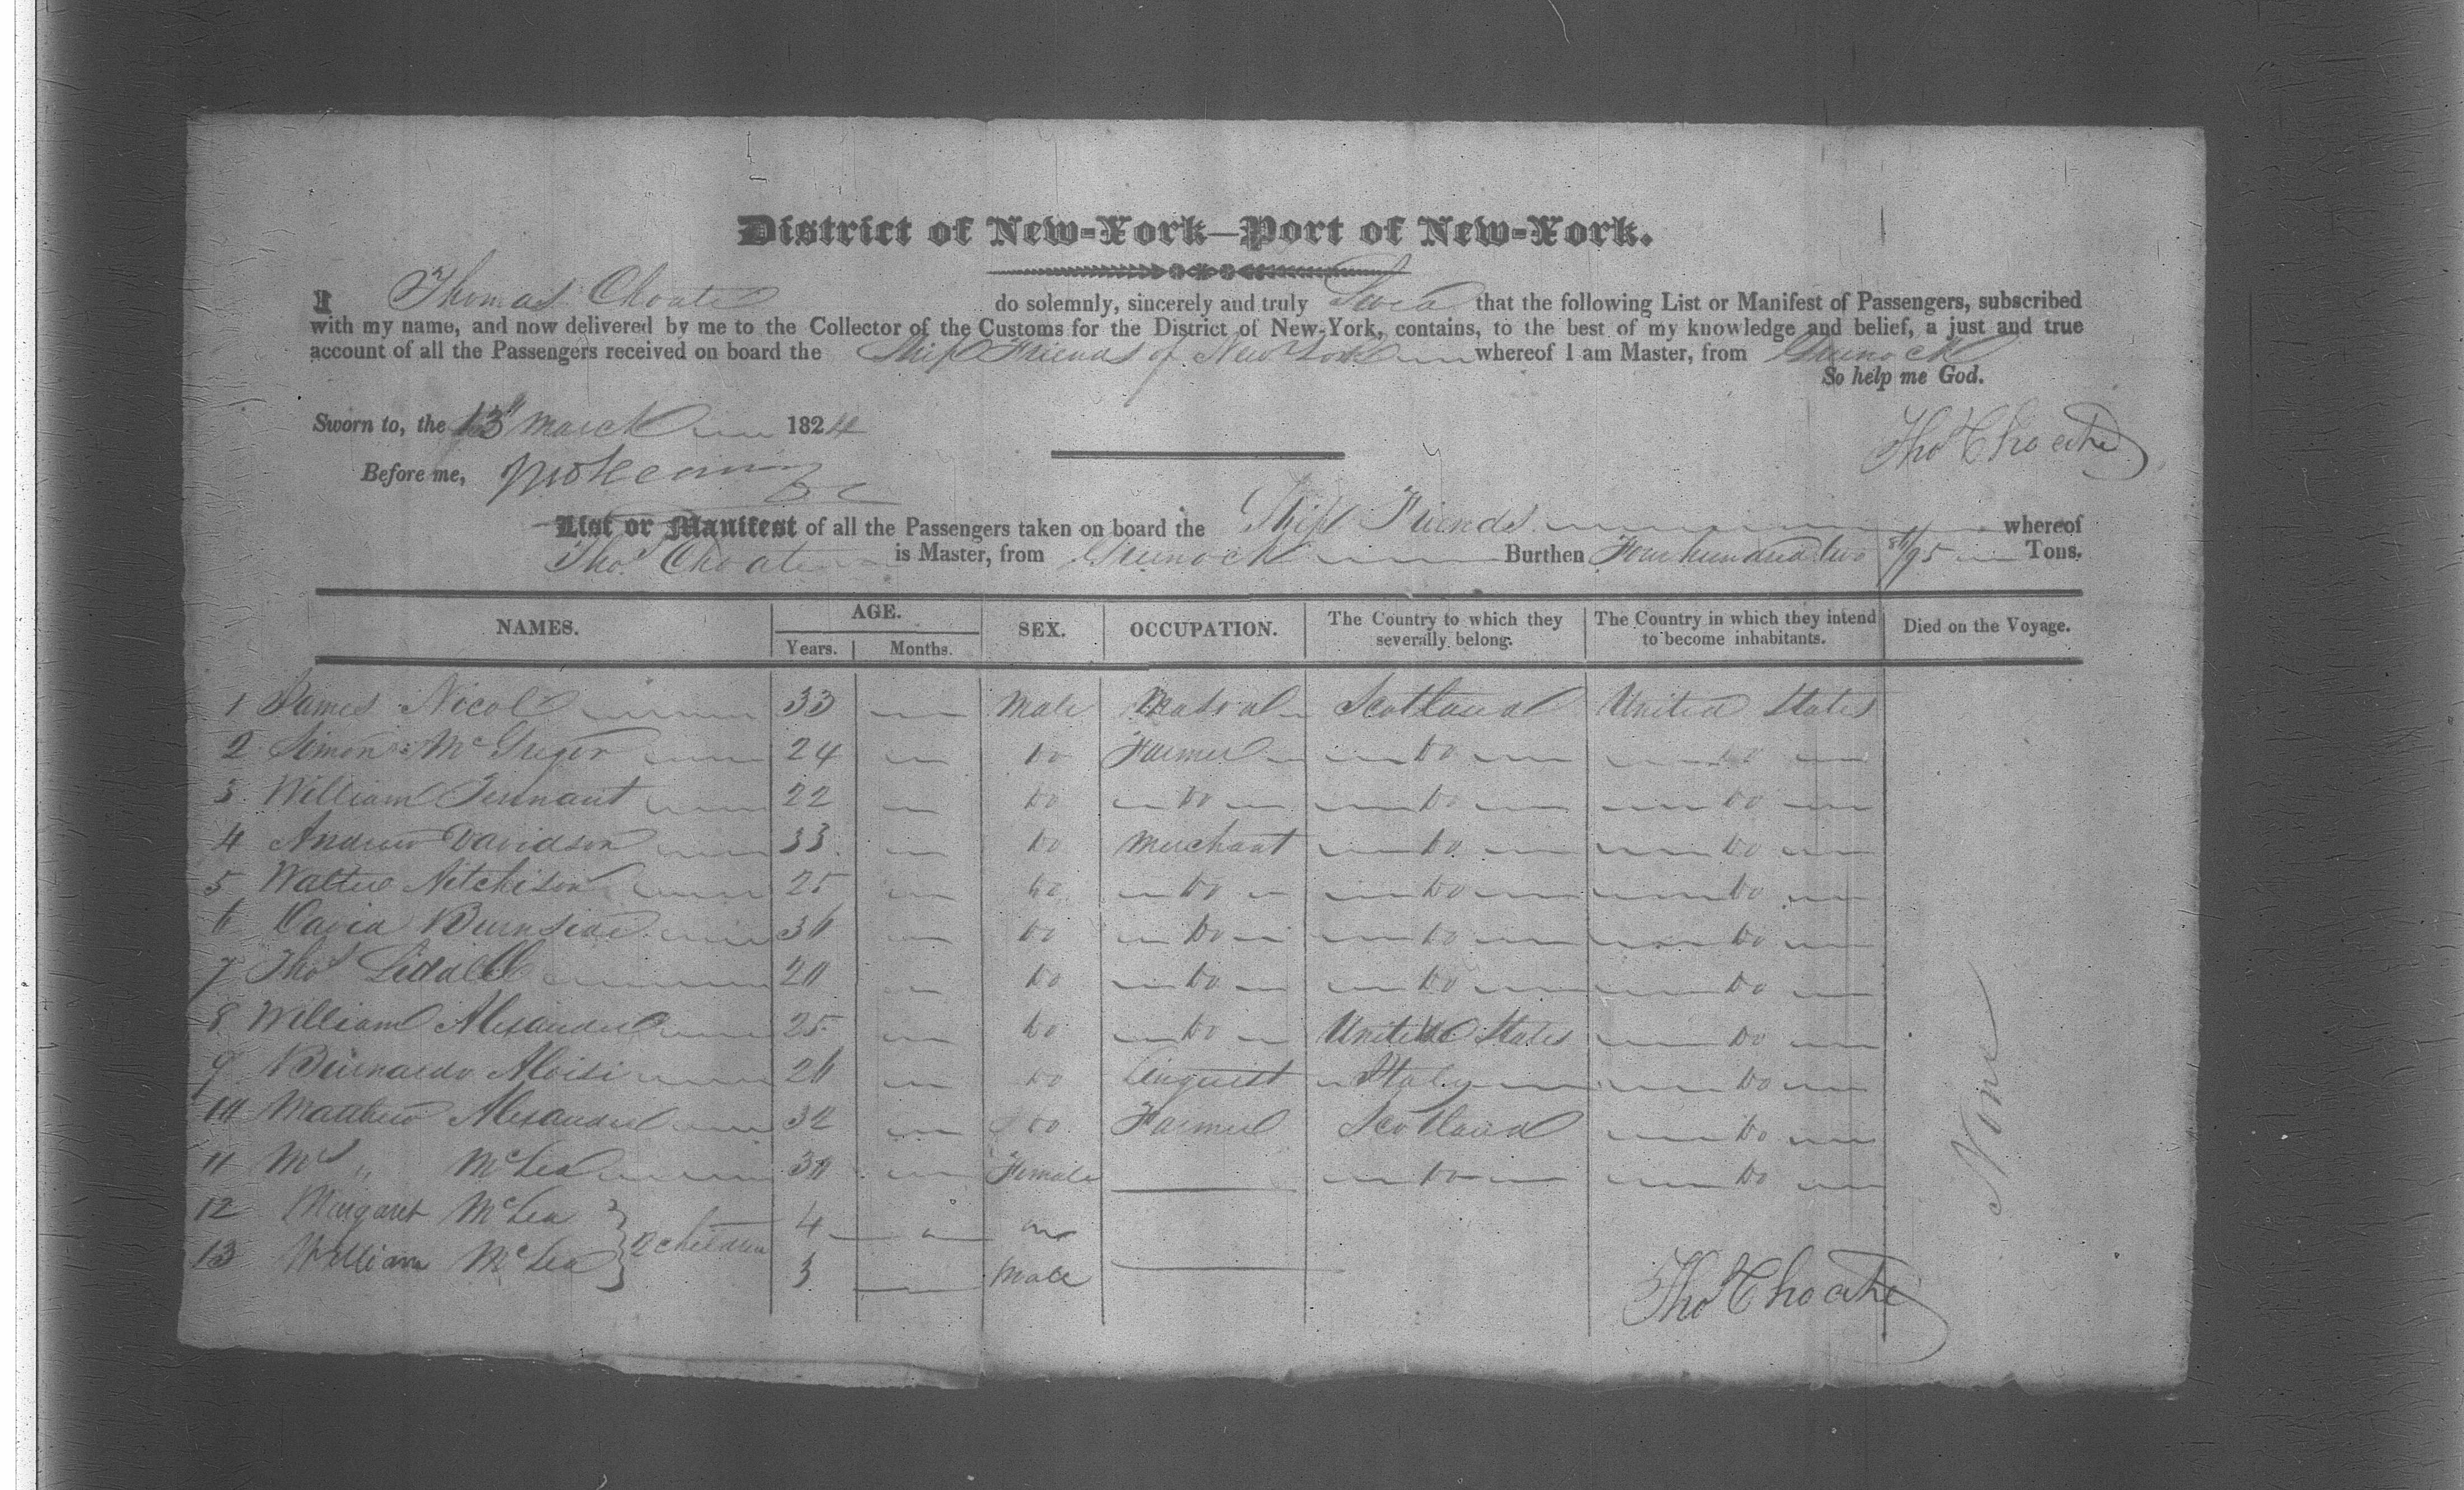 District of New-York—Port of New-York.
I Thomas Choate do solemnly, sincerely and truly Swear that the following List or Manifest of Passengers, subscribed
with my name, and now delivered by me to the Collector of the Customs for the District of New-York, contains, to the best of my knowledge and belief, a just and true
account of all the Passengers received on board the Ship Friends of New York whereof I am Master, from Greenock
So help me God.
Sworn to, the 13th March 1824 Thos Choate
Before me,
List or Manifest of all the Passengers taken on board the Ship Friends whereof
Thos Choate is Master, from Greenock Burthen Four hundred two /95 Tons.
NAMES. AGE. Years. Months. SEX. OCCUPATION. The Country to which they severally belong. The Country in which they intend to become inhabitants. Died on the Voyage.
1 James Nicol 33 — Male Scotland United States
2 Simon McGregor 24 — Do Farmer Do Do
3 William Tennant 22 — Do Do Do Do
4 Andrew Davidson 33 — Do Merchant Do Do
5 Walter Aitchison 25 — Do Do Do Do
6 David Burnside 36 — Do Do Do Do
7 Thos 20 — Do Do Do Do
8 William Alexander 25 — Do Do United States Do
9 Bernardo Aloisi 26 — Do Italy Do
10 Matthew Alexander 32 — Do Farmer Scotland Do
11 Mrs " McLea 30 — Female — Do Do
12 Margaret McLea } 2 children 4 —
13 William McLea } 3 — Male —
None
Thos Choate